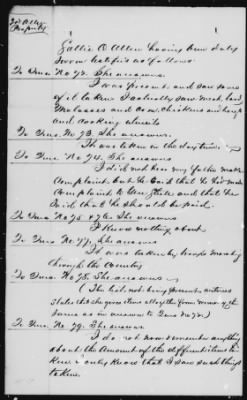 Sallie O. Allen having been duly
sworn testified as follows
To Ques. No 72. She answers
I was present and saw some
of it taken I actually saw meat, lard
Molasses and Cow, chickens and hogs
and cooking utensils
To Ques. No 73. She answers
It was taken in the daytime
To Ques. No 74. She answers
I did not hear my father make
complaint but he said that he had made
complaint to and that he
said that he should be paid.
To Ques No 75 & 76. She answers
I know nothing about
To Ques. No 77. She answers
It was taken by troops marching
through the Country
To Ques No 78. She answers
(The list not being present witness
states that she gives items alleged from memory the
same as in answer to Ques No 72)
To Ques. No 79. She answers
I do not now remember anything
about the amount of the different items taken
I only know that I saw such things
taken.